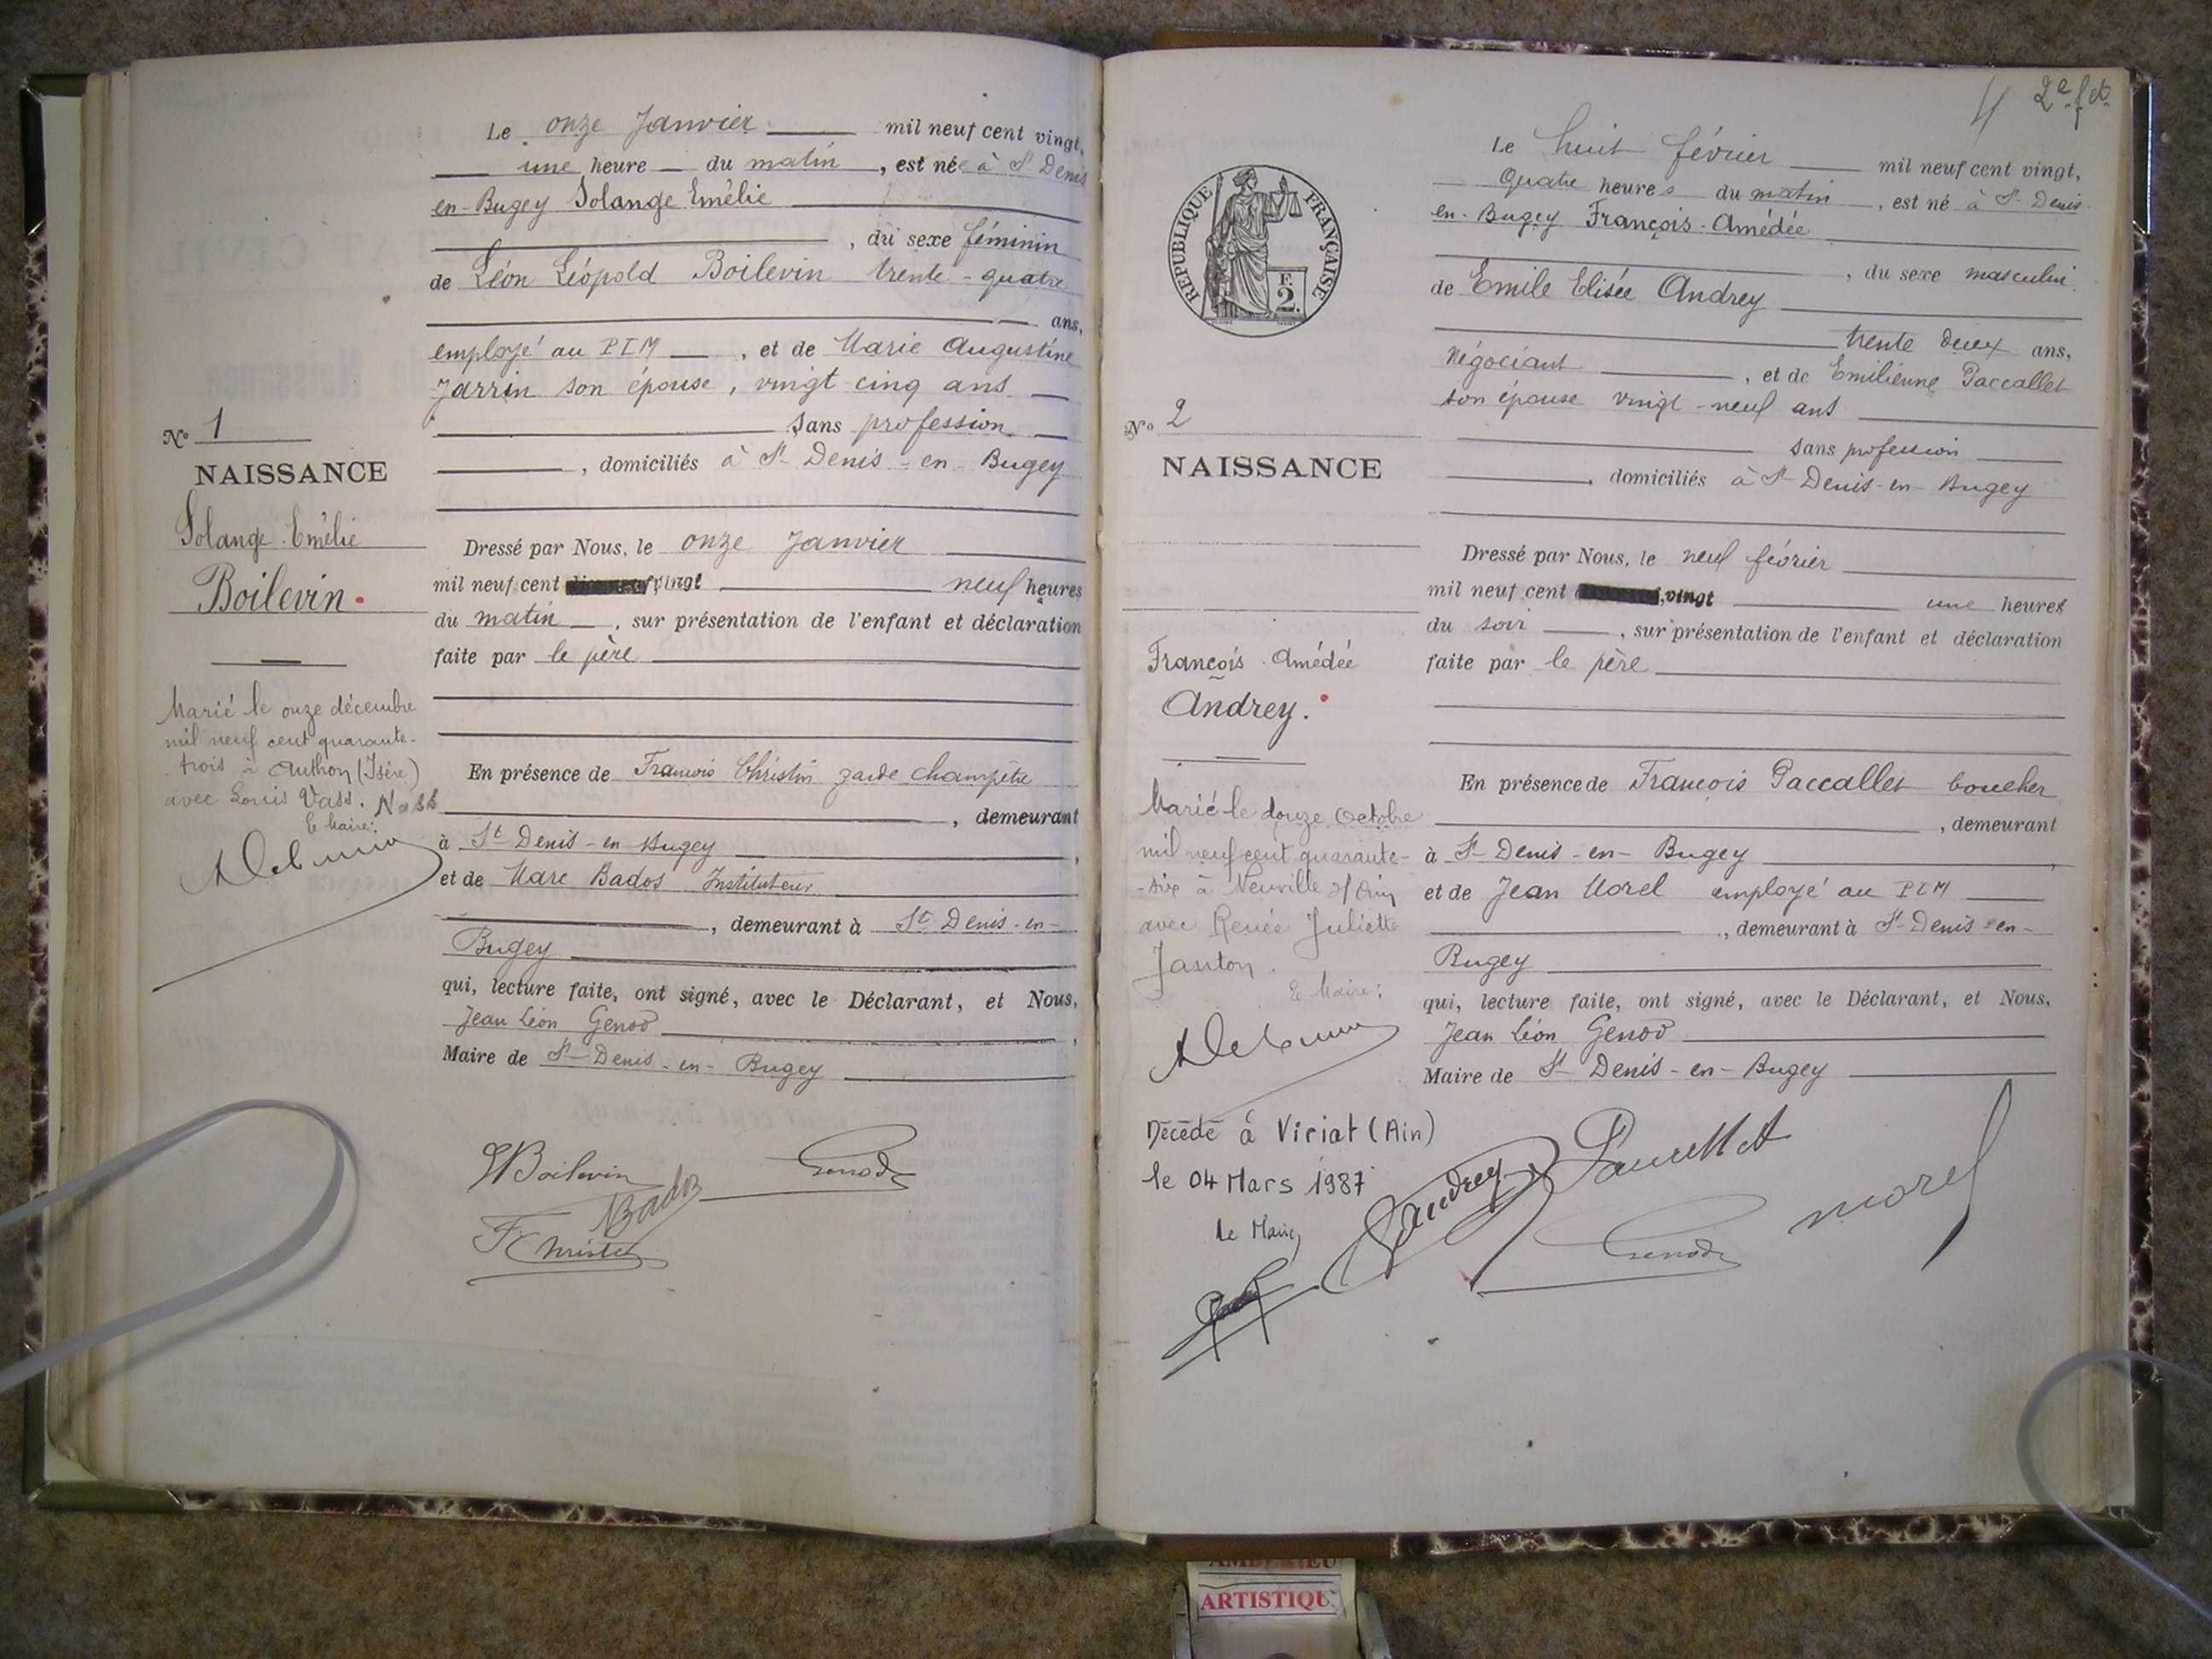 Le onze Janvier mil neuf cent vingt,
une heure du matin, est née à St Denis
en-Bugey Solange Emélie
, du sexe féminin
de Léon Léopold Boilevin trente-quatre
ans,
employé au PLM, et de Marie Augustine
Jarrin son épouse, vingt cinq ans
Sans profession
, domiciliés à St Denis-en-Bugey
No 1
NAISSANCE
Solange Emélie
Boilevin.
Dressé par Nous, le onze Janvier
mil neuf cent vingt neuf heures
du matin, sur présentation de l'enfant et déclaration
faite par le père
Marié le onze décembre
mil neuf cent quarante-
trois à Anthon (Isère)
avec Louis Vass.
Le Maire:
En présence de François Christin garde champêtre
, demeurant
à St Denis-en-Bugey,
et de Marc Bados Instituteur
, demeurant à St Denis-en-
Bugey
qui, lecture faite, ont signé, avec le Déclarant, et Nous,
Jean Léon Genod,
Maire de St-Denis-en-Bugey
Boilevin
Genod
Bados
F Christin
4 2e f et
RÉPUBLIQUE FRANÇAISE
F.
2.
Le huit février mil neuf cent vingt,
Quatre heures du matin, est né à St-Denis-
en-Bugey François-Amédée
, du sexe masculin
de Emile Elisée Andrey
trente deux ans,
Négociant, et de Emilienne Paccallet
son épouse vingt-neuf ans
sans profession
, domiciliés à St Denis-en-Bugey
No 2
NAISSANCE
François Amédée
Andrey.
Dressé par Nous, le neuf février
mil neuf cent vingt une heures
du soir, sur présentation de l'enfant et déclaration
faite par le père
Marié le douze Octobre
mil neuf cent quarante-
-six à Neuville s/ Ain
avec Renée Juliette
Janton.
Le Maire:
En présence de François Paccallet boucher
, demeurant
à St-Denis-en-Bugey,
et de Jean Morel employé au PLM
, demeurant à St-Denis-en-
Bugey
qui, lecture faite, ont signé, avec le Déclarant, et Nous,
Jean Léon Genod
Maire de St Denis-en-Bugey
Décédé à Viriat (Ain)
le 04 Mars 1987
Le Maire
Andrey
Paccallet
Genod
morel
ARTISTIQU